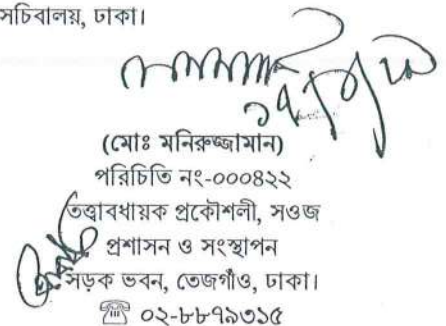 সচিবালয়, ঢাকা।
(মোঃ মনিরুজ্জামান)
পরিচিতি নং-০০০৪২২
তত্ত্বাবধায়ক প্রকৌশলী, সওজ
প্রশাসন ও সংস্থাপন
সড়ক ভবন, তেজগাঁও, ঢাকা।
☎ ০২-৮৮৭৯৩১৫